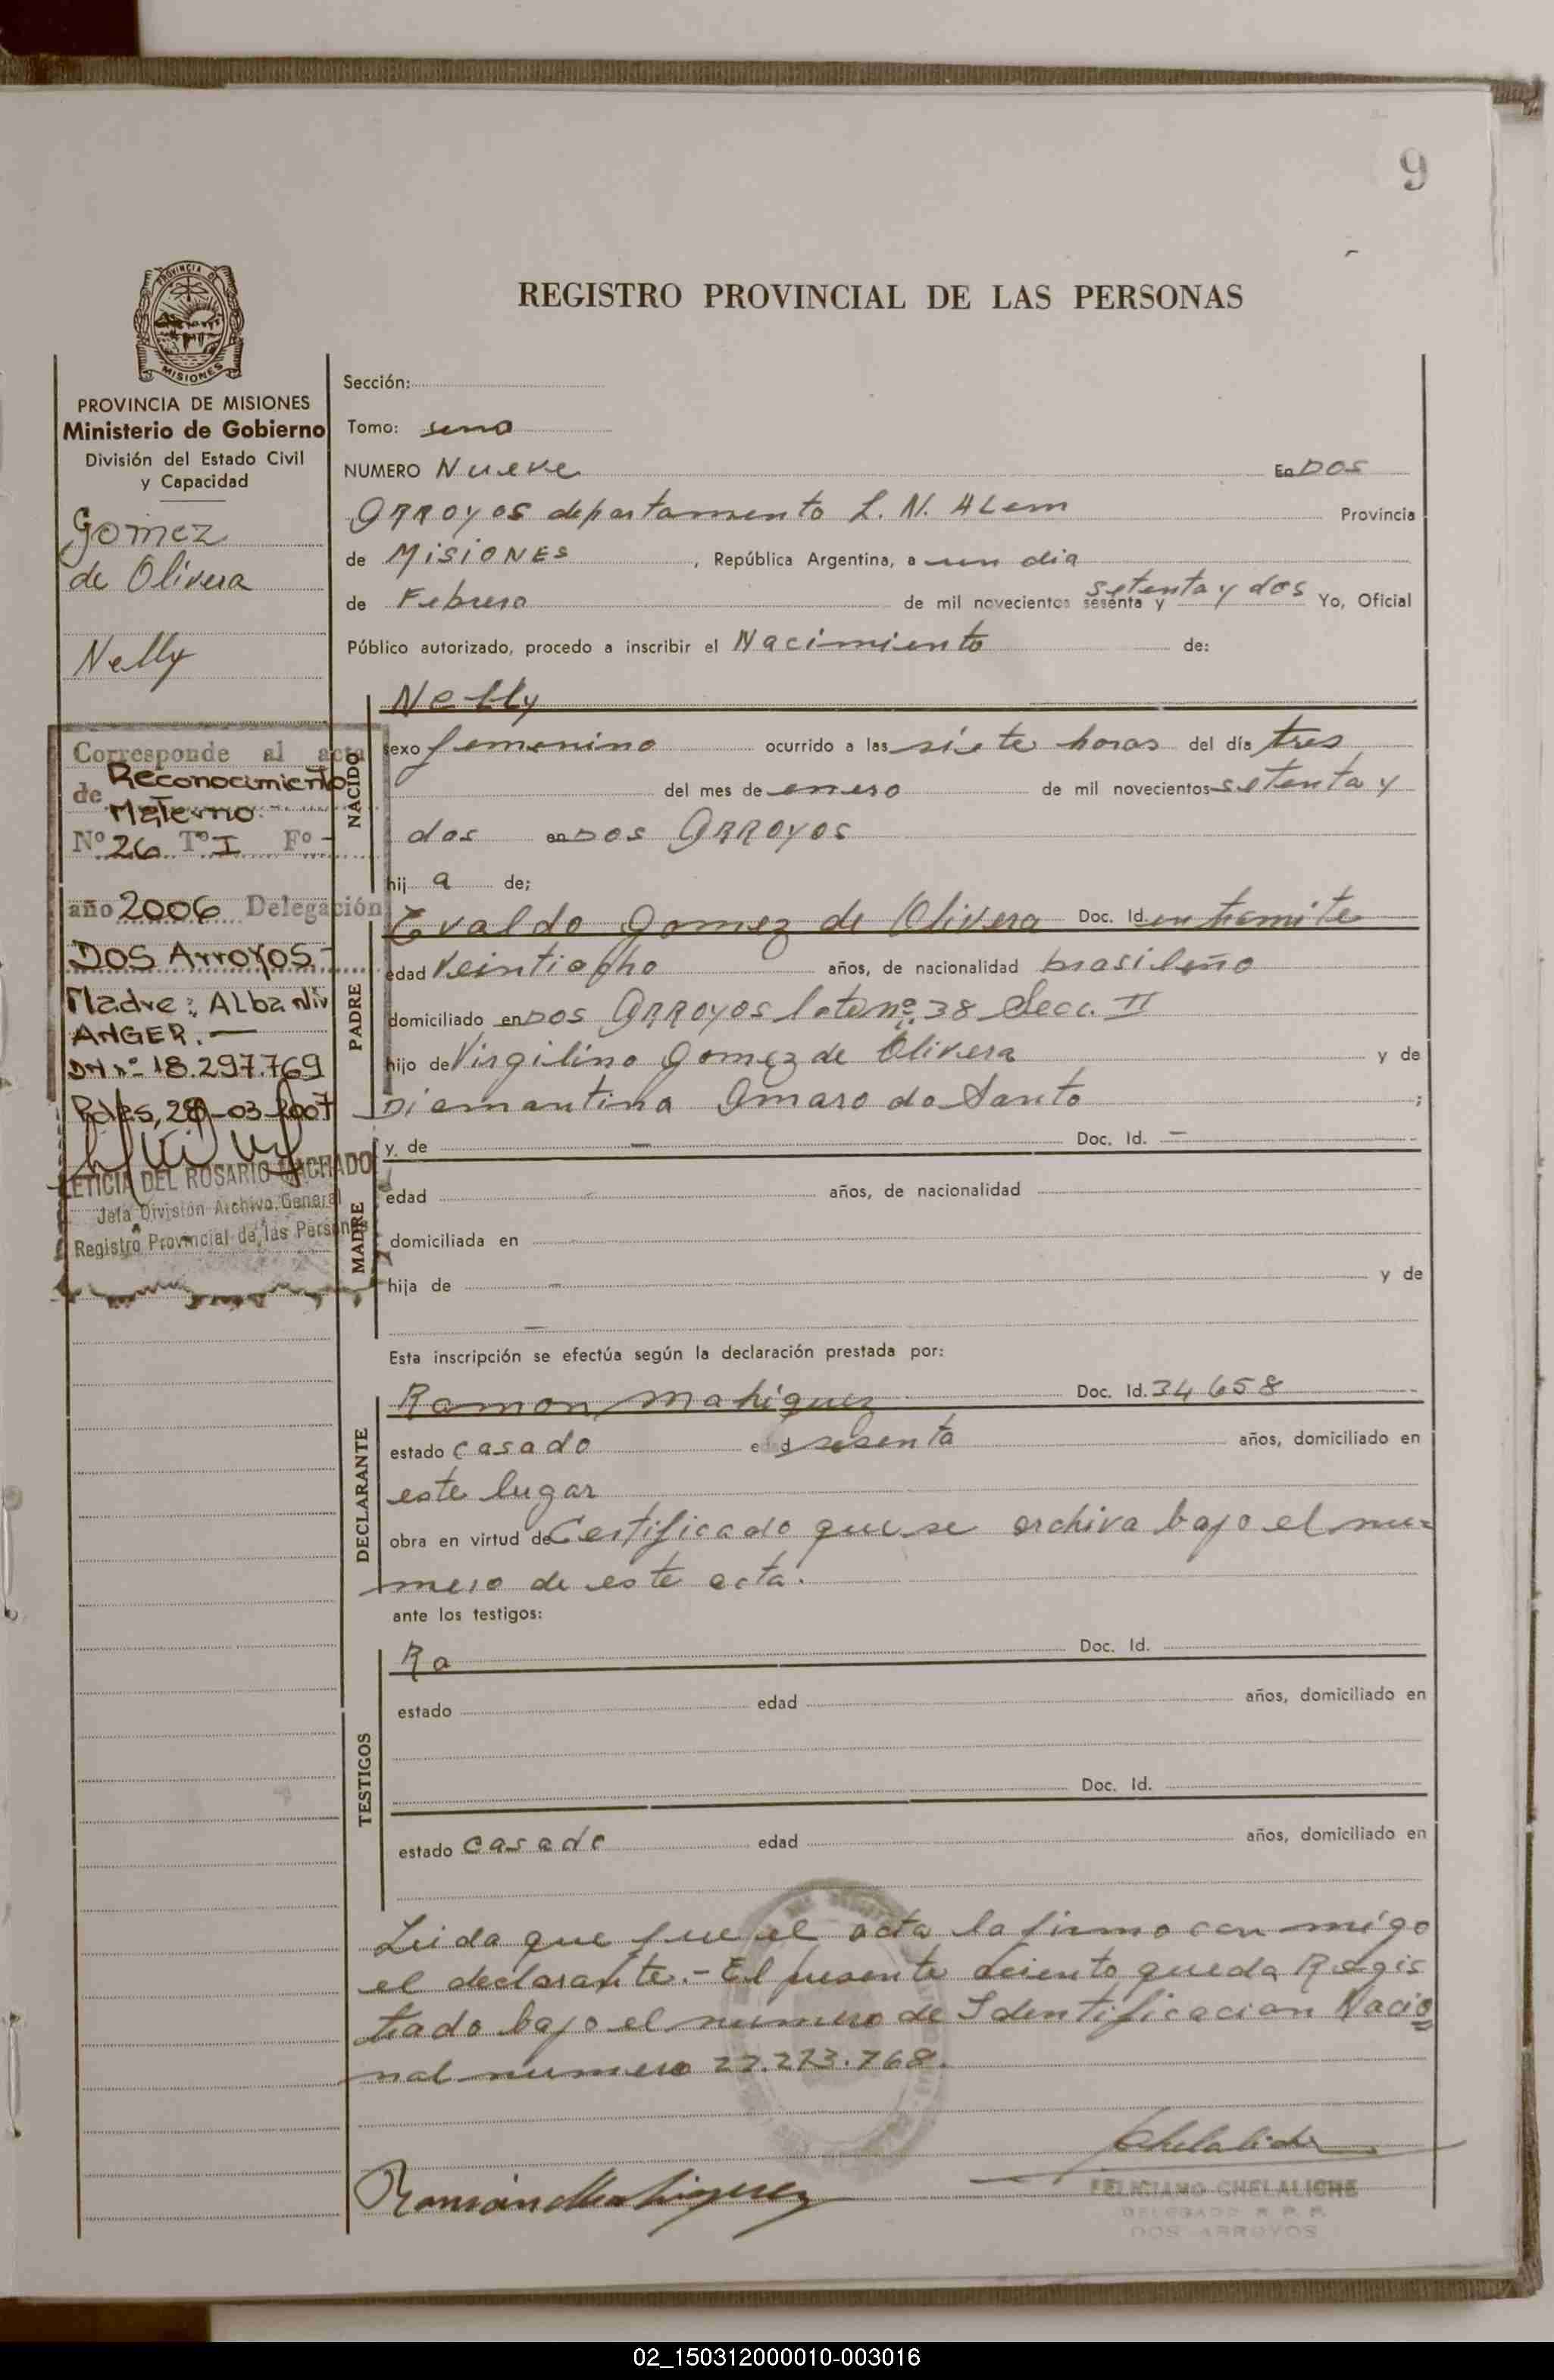 9
PROVINCIA DE
MISIONES
PROVINCIA DE MISIONES
Ministerio de Gobierno
División del Estado Civil
y Capacidad
Gomez
de Olivera
Nelly
Corresponde al acta
de Reconocimiento
Materno.
Nº 26 Tº I Fº -
año 2006 Delegación
DOS Arroyos -
Madre: ALba Niv
ANGER. —
DNI nº 18.297.769
Pdas, 28-03-2007
LETICIA DEL ROSARIO MACHADO
Jefa División Archivo General
Registro Provincial de las Personas
REGISTRO PROVINCIAL DE LAS PERSONAS
Sección:
Tomo: uno
NUMERO Nueve En DOS
ARROYOS departamento L. N. ALem Provincia
de MISIONES , República Argentina, a un dia
de Febrero de mil novecientos sesenta y setenta y dos Yo, Oficial
Público autorizado, procedo a inscribir el Nacimiento de:
NACIDO
Nelly
sexo femenino ocurrido a las siete horas del día tres
del mes de enero de mil novecientos setenta y
dos en DOS ARROYOS
hij a de;
PADRE
Evaldo Gomez de Olivera Doc. Id. en tramite
edad Veintiocho años, de nacionalidad brasileño
domiciliado en DOS ARROYOS lote nº 38 Secc. II
hijo de Virgilino Gomez de Olivera y de
Diamantina Amaro do Santo ;
MADRE
y de — Doc. Id. —
edad años, de nacionalidad
domiciliada en
hija de — y de
—
Esta inscripción se efectúa según la declaración prestada por:
DECLARANTE
Ramon Mahiquez Doc. Id. 34658
estado casado edad sesenta años, domiciliado en
este lugar
obra en virtud de Certificado que se archiva bajo el nu=
mero de este acta.
ante los testigos:
TESTIGOS
Ra Doc. Id.
estado edad años, domiciliado en
Doc. Id.
estado casado edad años, domiciliado en
Leida que fue el acta la firmo con migo
el declarante.- El presente asiento queda Regis
trado bajo el numero de Identificacion Nacio=
nal numero 22.273.768.
Ramón Mahiquez
Chelaliche
FELICIANO CHELALICHE
DELEGADO R. P. P.
DOS ARROYOS
02_150312000010-003016